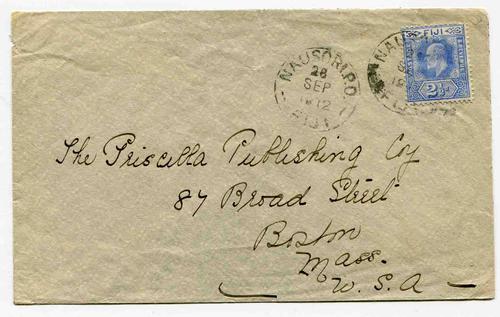 NAUSORI P.O.
28
SEP
1912
FIJI
FIJI
POSTAGE
2½d
The Priscilla Publishing Coy
87 Broad Street
Boston
Mass.
U. S. A